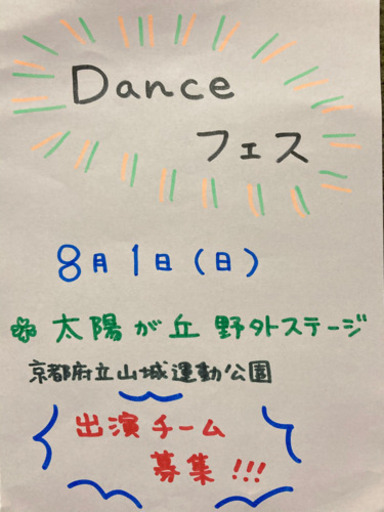 Dance
フェス
8月1日(日)
太陽が丘 野外ステージ
京都府立山城運動公園
出演チーム
募集!!!